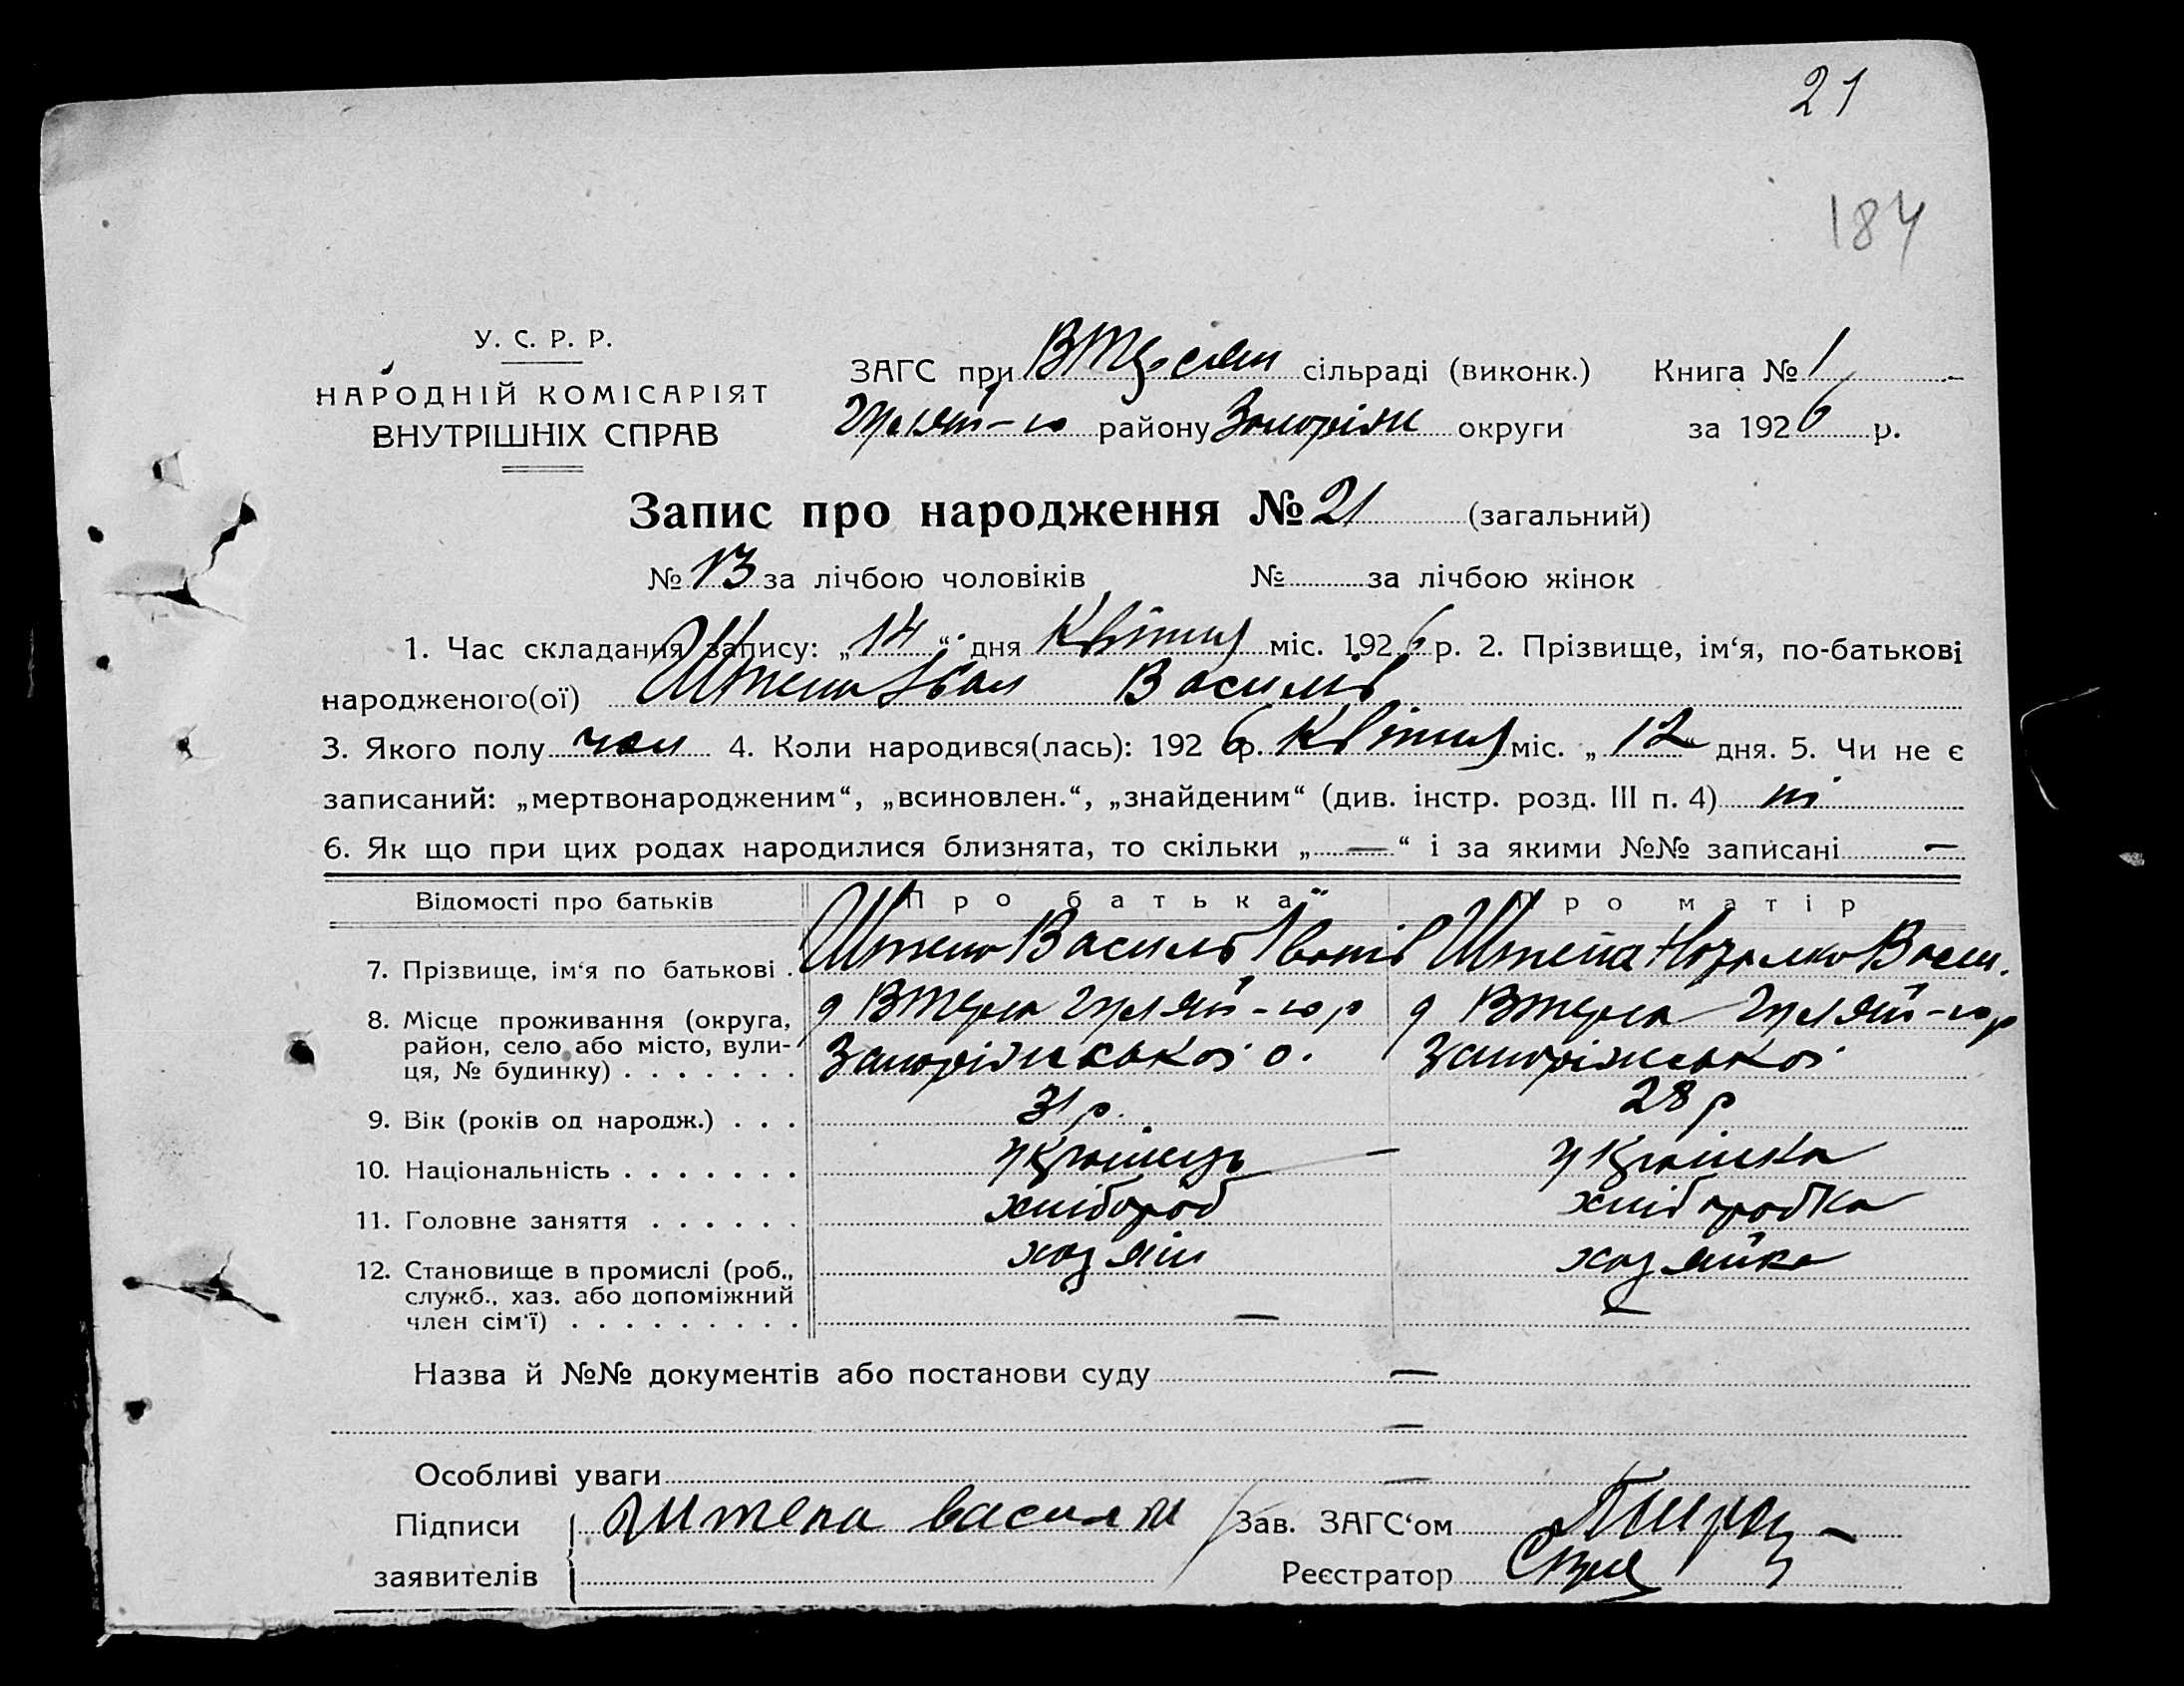 21
184
У. С. Р. Р.
НАРОДНІЙ КОМІСАРІЯТ
ВНУТРІШНІХ СПРАВ
ЗАГС при сільраді (виконк.) Книга № 1
Гуляй-по району Запоріж округи за 1926 р.
Запис про народження № 21 (загальний)
№ 13 за лічбою чоловіків № за лічбою жінок
1. Час складання запису: „14“ дня Квітня міс. 1926 р. 2. Прізвище, ім‘я, по-батькові
народженого(ої) Штепа Іван Василів
3. Якого полу чол 4. Коли народився(лась): 1926 р. Квітня міс. „12“ дня. 5. Чи не є
записаний: „мертвонародженим“, „всиновлен.“, „знайденим“ (див. інстр. розд. III п. 4) ні
6. Як що при цих родах народилися близнята, то скільки „—“ і за якими №№ записані —
Відомості про батьків Про батька Про матір
7. Прізвище, ім‘я по батькові . Штепа Василь Іванів Штепа Васи.
8. Місце проживання (округа,
район, село або місто, вули-
ця, № будинку) . . . . . . . Запоріжської о. Запоріжської
9. Вік (років од народж.) . . . 31 р. 28 р
10. Національність . . . . . . . українець — українка
11. Головне заняття . . . . . . хлібороб хліборобка
12. Становище в промислі (роб.,
служб., хаз. або допоміжний
член сім‘ї) . . . . . . . . . хазяїн — хазяйка —
Назва й №№ документів або постанови суду —
—
Особливі уваги —
Підписи Штепа Зав. ЗАГС‘ом
заявителів Реєстратор